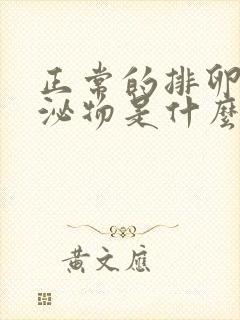 正常的排卵
泌物是什麼
黃文應